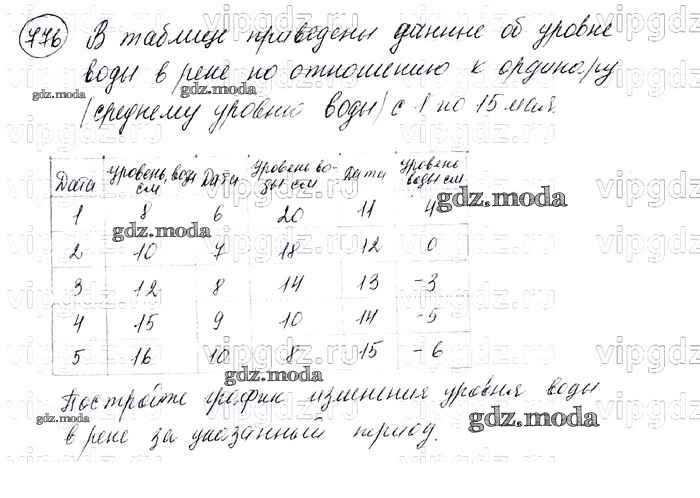 776 В таблице приведены данные об уровне
воды в реке по отношению к ординару
(среднему уровню воды) с 1 по 15 мая.
Дата Уровень воды см Дата Уровень воды см Дата Уровень воды см
1 8 6 20 11 4
2 10 7 18 12 0
3 12 8 14 13 -3
4 15 9 10 14 -5
5 16 10 8 15 -6
Постройте график изменения уровня воды
в реке за указанный период.
gdz.moda
gdz.moda
gdz.moda
gdz.moda
gdz.moda
gdz.moda
vipgdz.ru